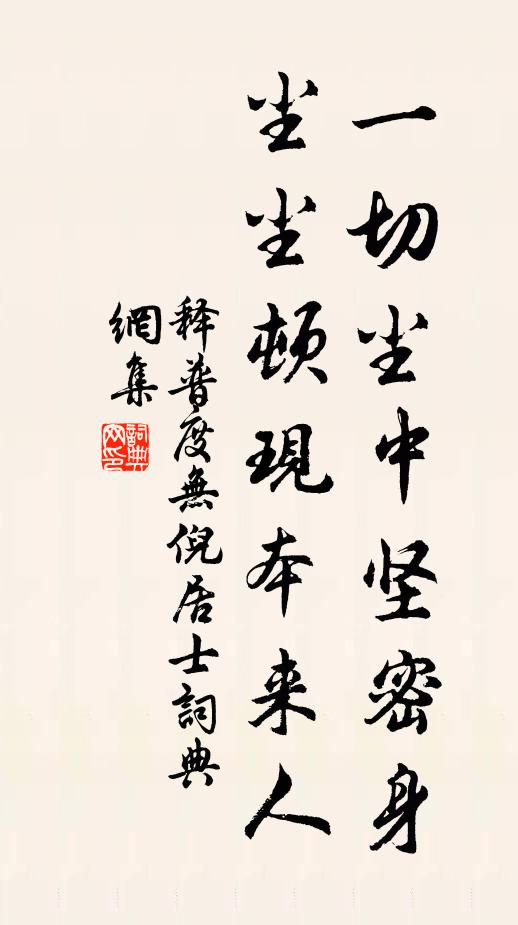 一切尘中坚密身
尘尘顿現本来人
释普度無倪居士詞典
網集
詞典
网印